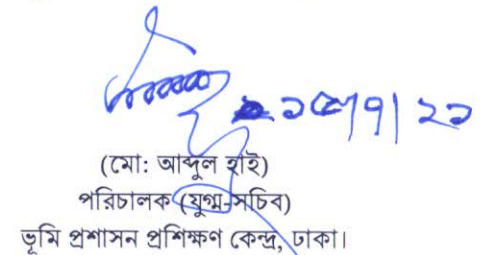 (মো: আব্দুল হাই)
পরিচালক (যুগ্ম-সচিব)
ভূমি প্রশাসন প্রশিক্ষণ কেন্দ্র, ঢাকা।